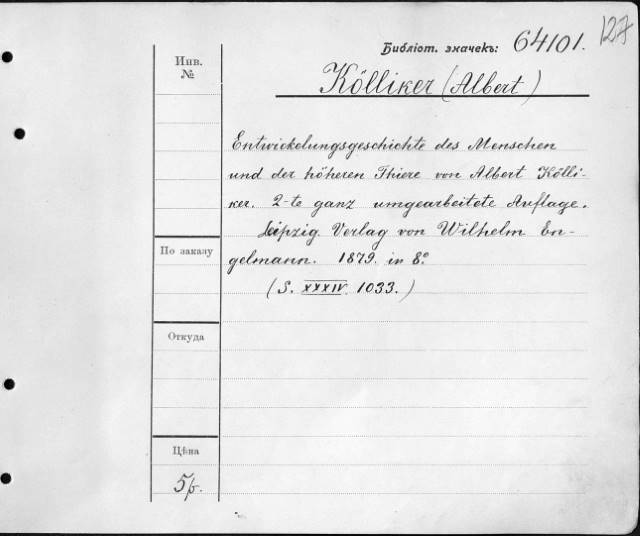 127
Библіот. значекъ: 64101.
Инв.
№
Kölliker (Albert)
Entwickelungsgeschichte des Menschen
und der höheren Thiere von Albert Kölli-
ker. 2-te ganz umgearbeitete Auflage.
Leipzig. Verlag von Wilhelm En-
gelmann. 1879. in 8°
(S. XXXIV. 1033.)
По заказу
Откуда
Цѣна
5р.